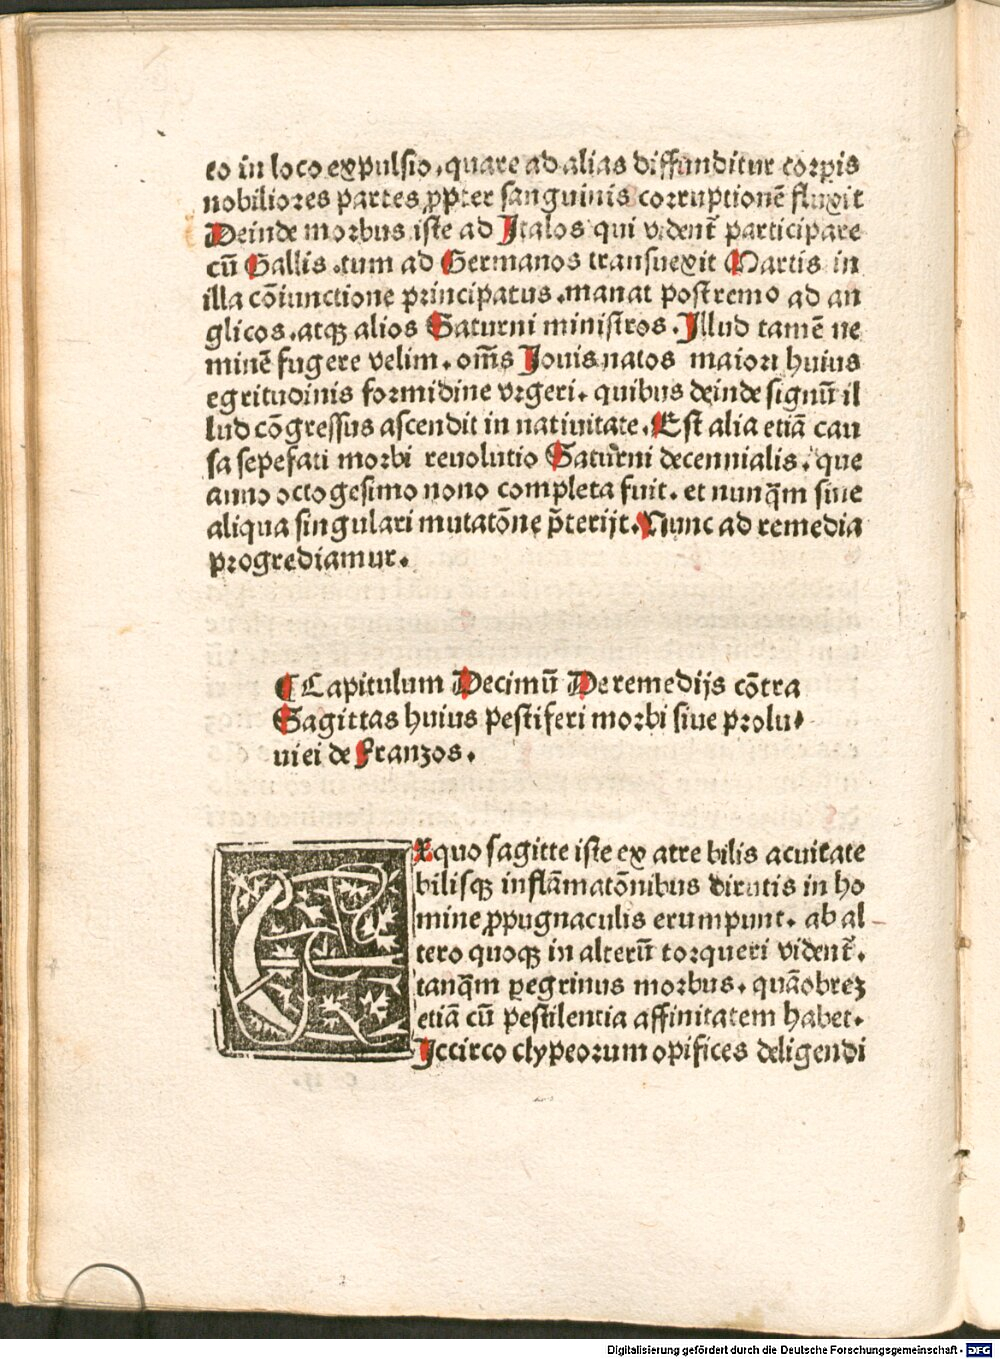 eo in loco expulsio. quare ad alias diffunditur corꝑis
nobiliores partes ꝓpter sanguinis corruptionē fluxit
Deinde morbus iste ad Italos qui vident᷑ participare
cū Gallis .tum ad Germanos transuexit Martis in
illa cōiunctione principatus .manat postremo ad an
glicos .atqꝫ alios Saturni ministros. Illud tamē ne
minē fugere velim. om̄s Iouis natos maiori huius
egritudinis formidine vrgeri. quibus deinde signū il
lud cōgressus ascendit in natiuitate. Est alia etiā cau
sa sepefati morbi reuolutio Saturni decennialis. que
anno octogesimo nono completa fuit. et nunq̄m siue
aliqua singulari mutatōne p̄terijt. Nunc ad remedia
progrediamur.
¶ Capitulum Decimū De remedijs cōtra
Sagittas huius pestiferi morbi siue prolu⸗
uiei de Franzos.
EX quo sagitte iste ex atre bilis acuitate
bilisqꝫ inflāmatōnibus dirutis in ho
mine ꝓpugnaculis erumpunt. ab al
tero quoqꝫ in alterū torqueri vident᷑.
tanq̄m peregrinus morbus. quāobrez
etiā cū pestilentia affinitatem habet.
Iccirco clypeorum opifices deligendi
Digitalisierung gefördert durch die Deutsche Forschungsgemeinschaft - DFG